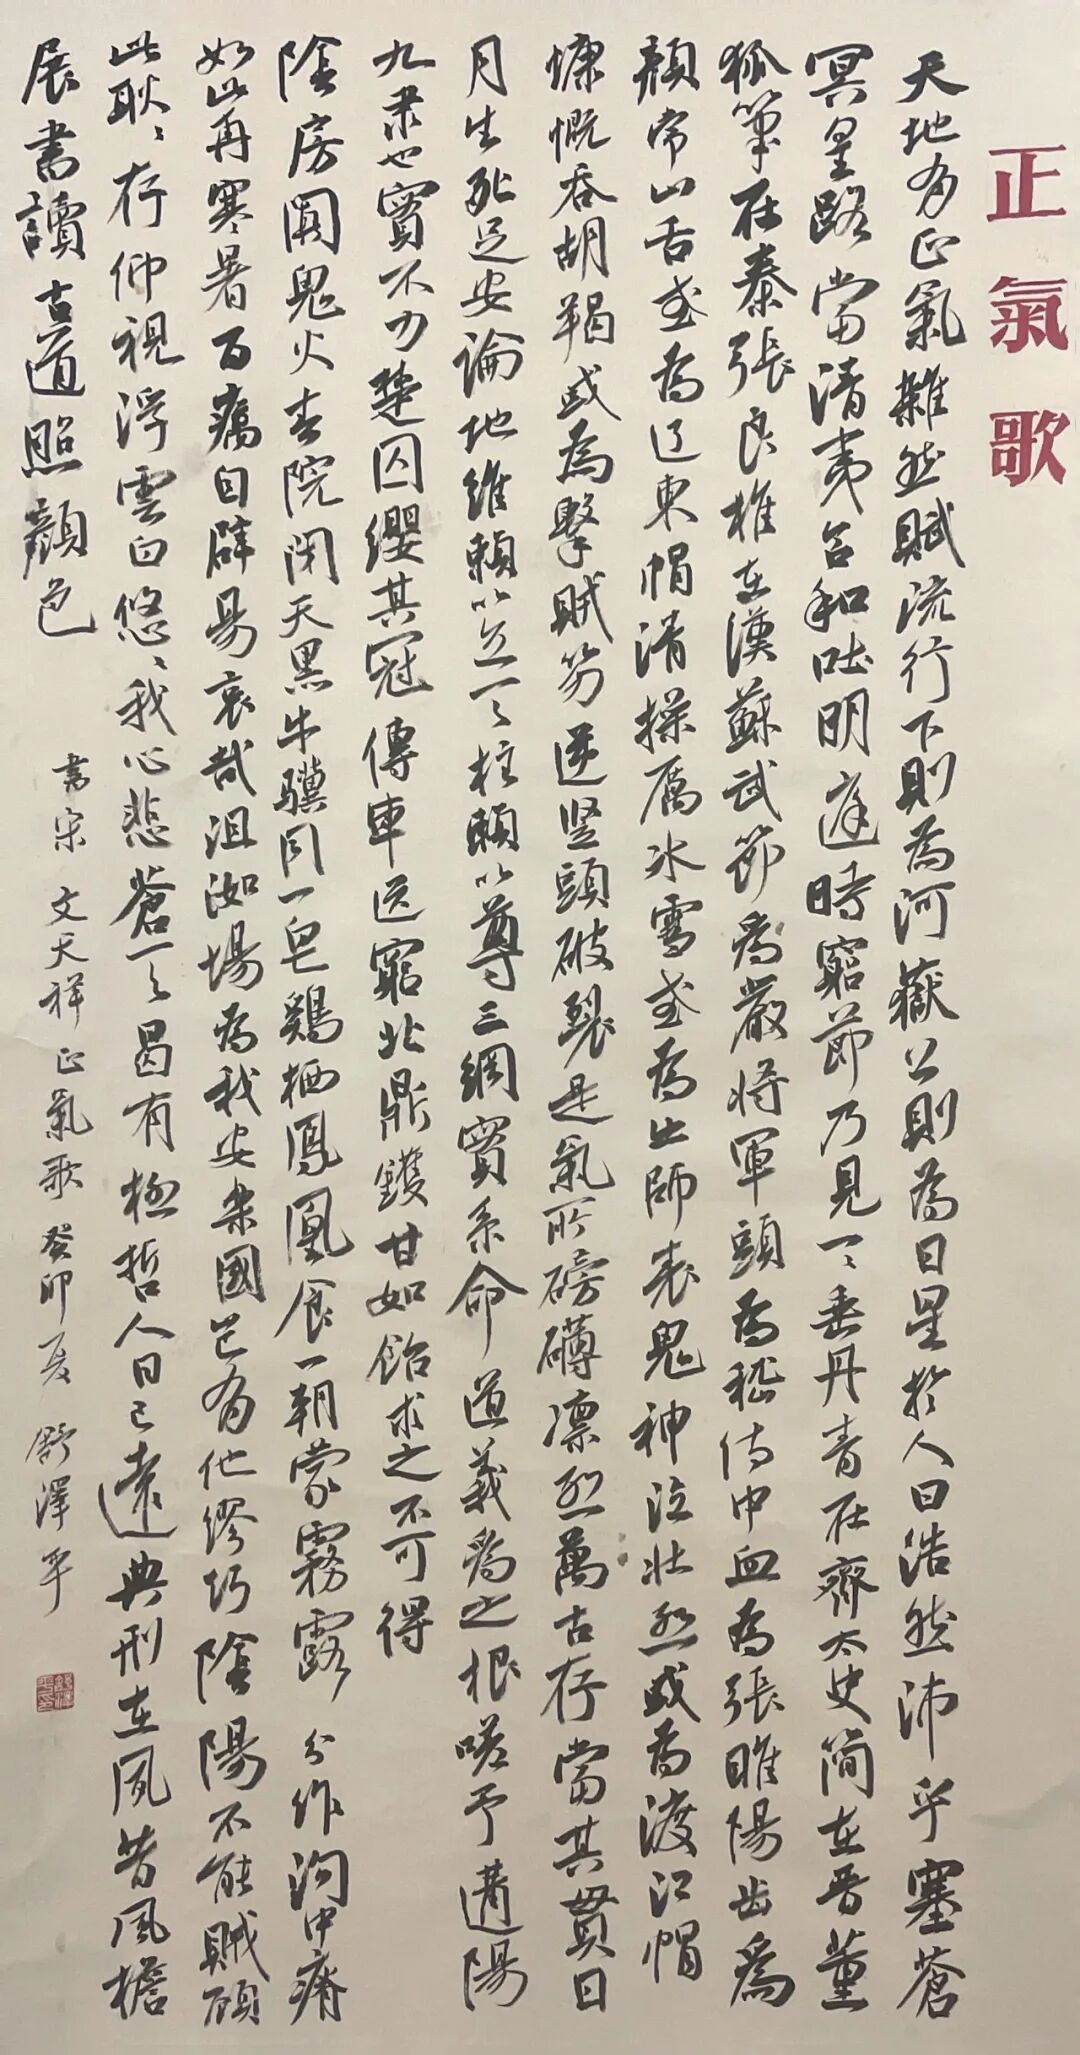 正氣歌
天地有正氣雜然賦流行下則為河嶽上則為日星於人曰浩然沛乎塞蒼
冥皇路當清夷含和吐明庭時窮節乃見一一垂丹青在齊太史簡在晉董
狐筆在秦張良椎在漢蘇武節為嚴將軍頭為嵇侍中血為張睢陽齒為
顏常山舌或為辽東帽清操厲冰雪或為出師表鬼神泣壯烈或為渡江帽
慷慨吞胡羯或為擊賊笏逆竖頭破裂是氣所磅礴凛烈萬古存當其貫日
月生死足安論地維賴以立天柱賴以尊三綱實系命道義為之根嗟予遘陽
九隶也實不力楚囚纓其冠傳車送窮北鼎鑊甘如飴求之不可得
陰房闃鬼火春院閉天黑牛驥同一皂鷄栖鳳凰食一朝蒙霧露分作溝中瘠
如此再寒暑百癘自辟易哀哉沮洳場為我安樂國豈有他缪巧陰陽不能賊顧
此耿耿存仰視浮雲白悠悠我心悲蒼天曷有極哲人日已遠典刑在夙昔風檐
展書讀古道照顏色
書宋 文天祥 正氣歌 癸卯夏 舒澤平